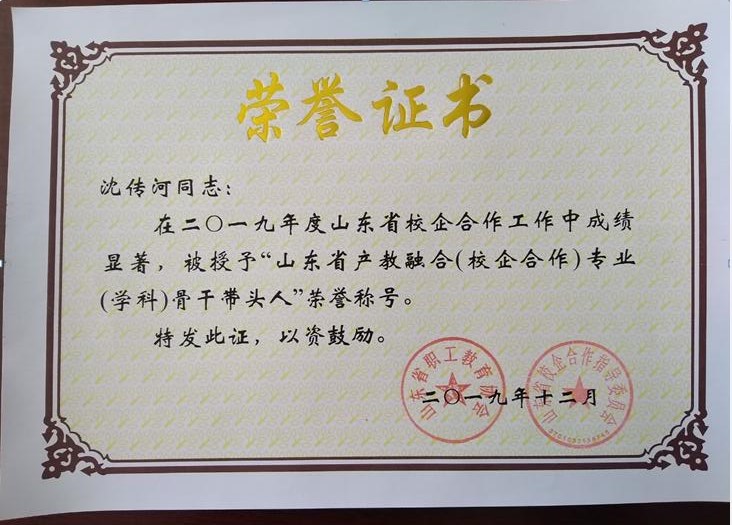 荣誉证书
沈传河同志：
在二〇一九年度山东省校企合作工作中成绩
显著，被授予“山东省产教融合(校企合作)专业
(学科)骨干带头人”荣誉称号。
特发此证，以资鼓励。
山东省职工教育协会
山东省校企合作指导委员会
二〇一九年十二月